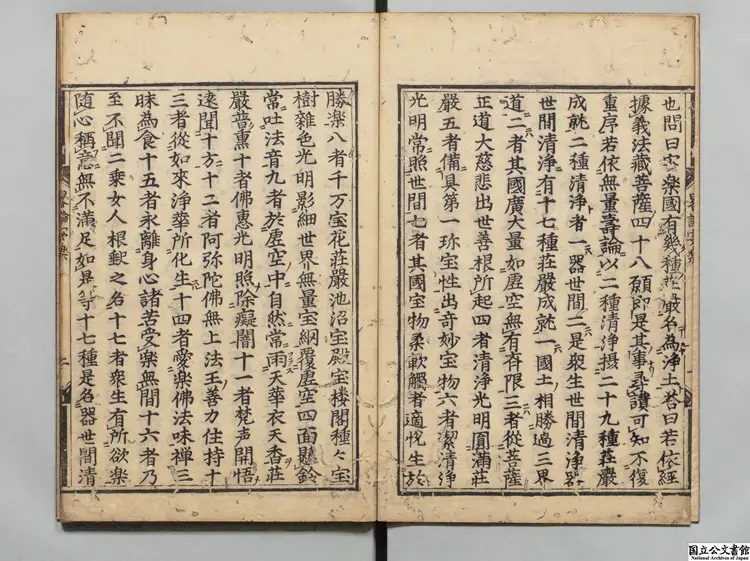 也問曰安楽國有幾種荘嚴名為浄土荅曰若依經
據義法藏菩薩四十八願即是其事尋讃可知不復
重序若依無量壽論以二種清浄攝二十九種荘嚴
成就二種清浄者一器世間二是衆生世間清浄器
世間清浄有十七種荘嚴成就一國土相勝過三界
道二者其國廣大量如虚空無有斉限三者從菩薩
正道大慈悲出世善根所起四者清浄光明圓滿荘
嚴五者備具第一珎宝性出奇妙宝物六者潔清浄
光明常照世間七者其國宝物柔軟觸者適悦生於
勝楽八者千万宝花荘嚴池沼宝殿宝楼閣種々宝
樹雜色光明影細世界無量宝網覆虚空四面懸鈴
常吐法音九者於虚空中自然常雨天華衣天香荘
嚴普熏十者佛惠光明照除癡闇十一者梵声開悟
遠聞十方十二者阿弥陀佛無上法王善力住持十
三者從如來浄華所化生十四者愛楽佛法味禅三
昧為食十五者永離身心諸苦受楽無間十六者乃
至不聞二乗女人根缺之名十七者衆生有所欲楽
随心稱意無不滿足如是等十七種是名器世間清
畧論安楽 二
国立公文書館
National Archives of Japan